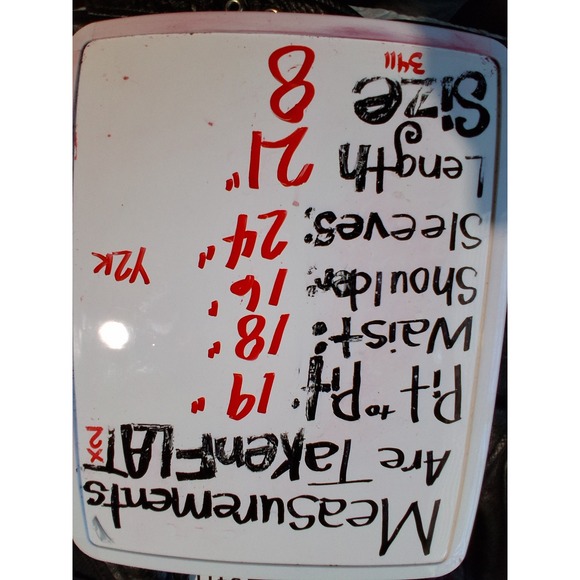 Measurements
Are Taken FLAT x2
Pit to Pit: 19"
Waist: 18"
Shoulder: 16" Y2K
Sleeves: 24"
Length 21"
Size 8
3411